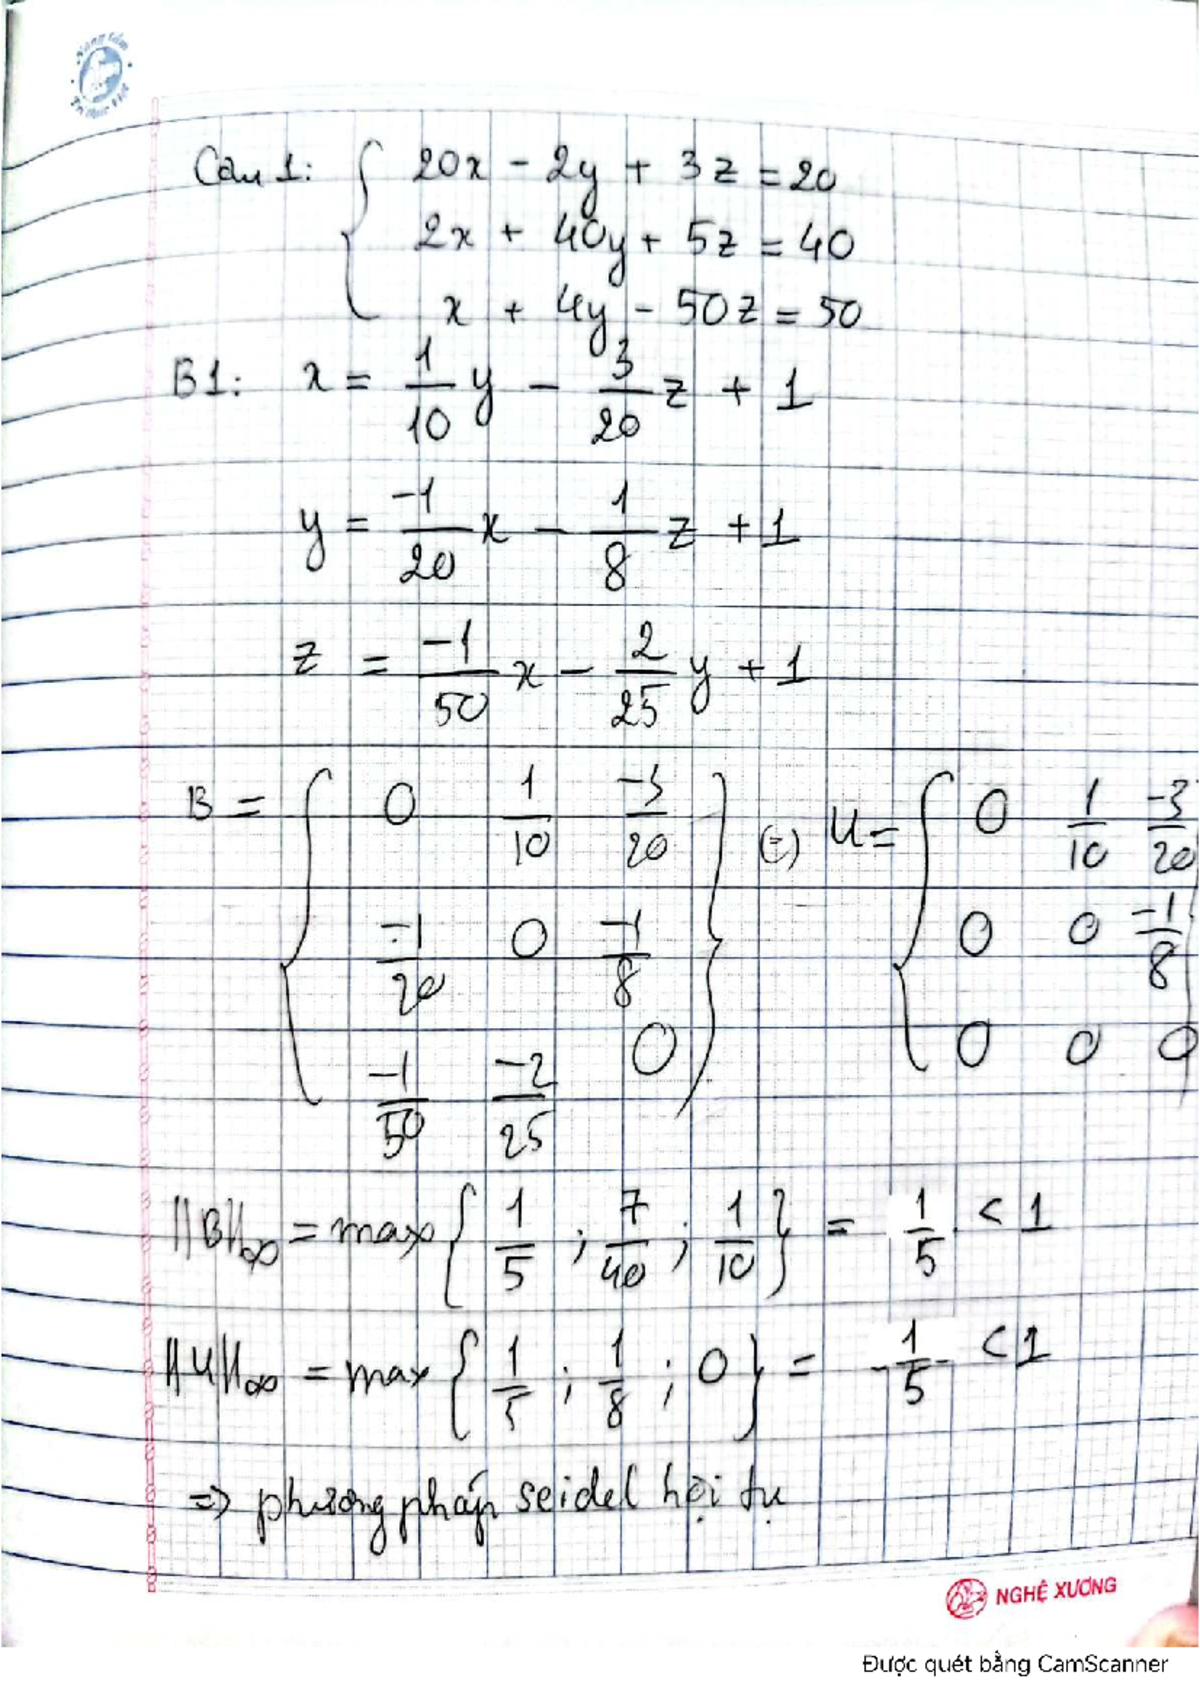 Câu 1: { 20x - 2y + 3z = 20
2x + 40y + 5z = 40
x + 4y - 50z = 50
B1: x = 1/10 y - 3/20 z + 1
y = -1/20 x - 1/8 z + 1
z = -1/50 x - 2/25 y + 1
B = { 0 1/10 -3/20 } (=) U = { 0 1/10 -3/20
-1/20 0 -1/8 0 0 -1/8
-1/50 -2/25 0 0 0 0
||B||∞ = max { 1/5 ; 7/40 ; 1/10 } = 1/5 < 1
||U||∞ = max { 1/5 ; 1/8 ; 0 } = 1/5 < 1
=> phương pháp seidel hội tụ
NGHỆ XƯƠNG
Được quét bằng CamScanner